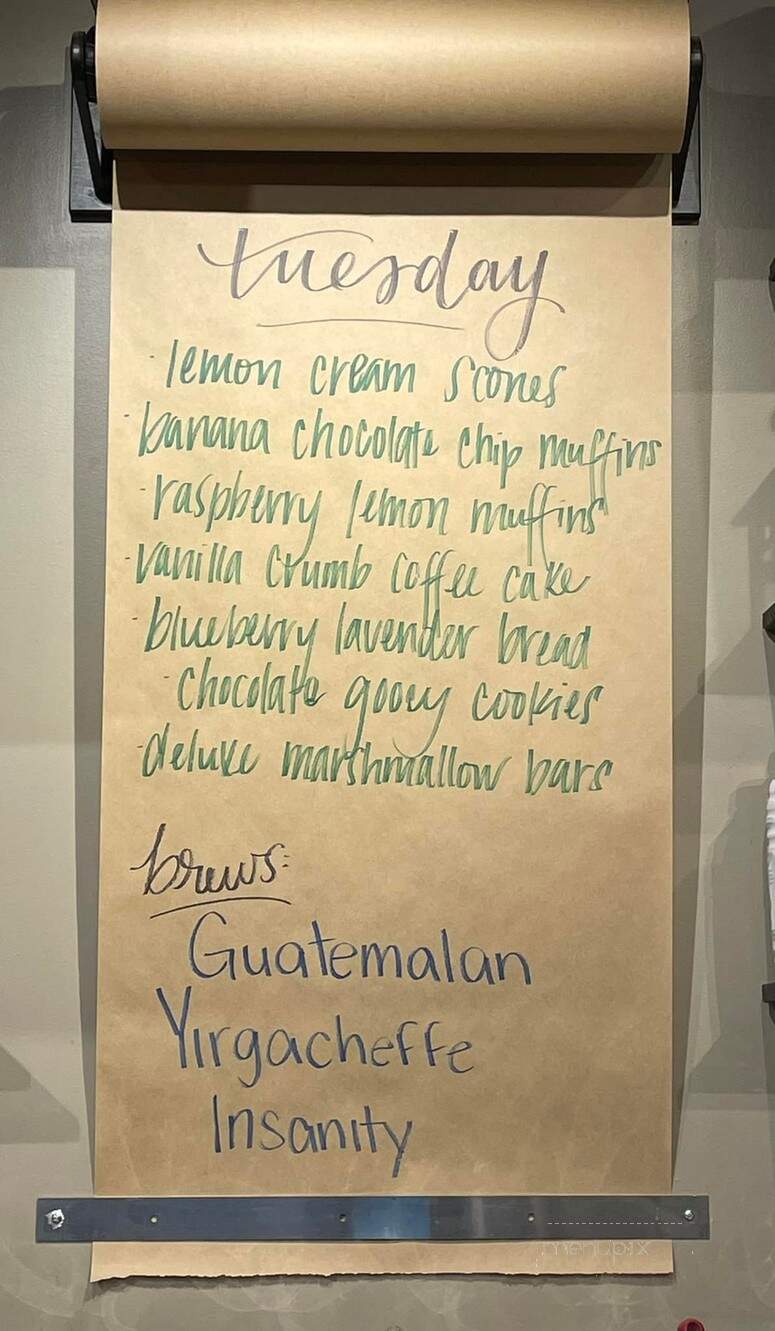 tuesday
· lemon cream scones
· banana chocolate chip muffins
· raspberry lemon muffins
· vanilla crumb coffee cake
· blueberry lavender bread
· chocolate gooey cookies
· deluxe marshmallow bars
brews:
Guatemalan
Yirgacheffe
Insanity
menupix